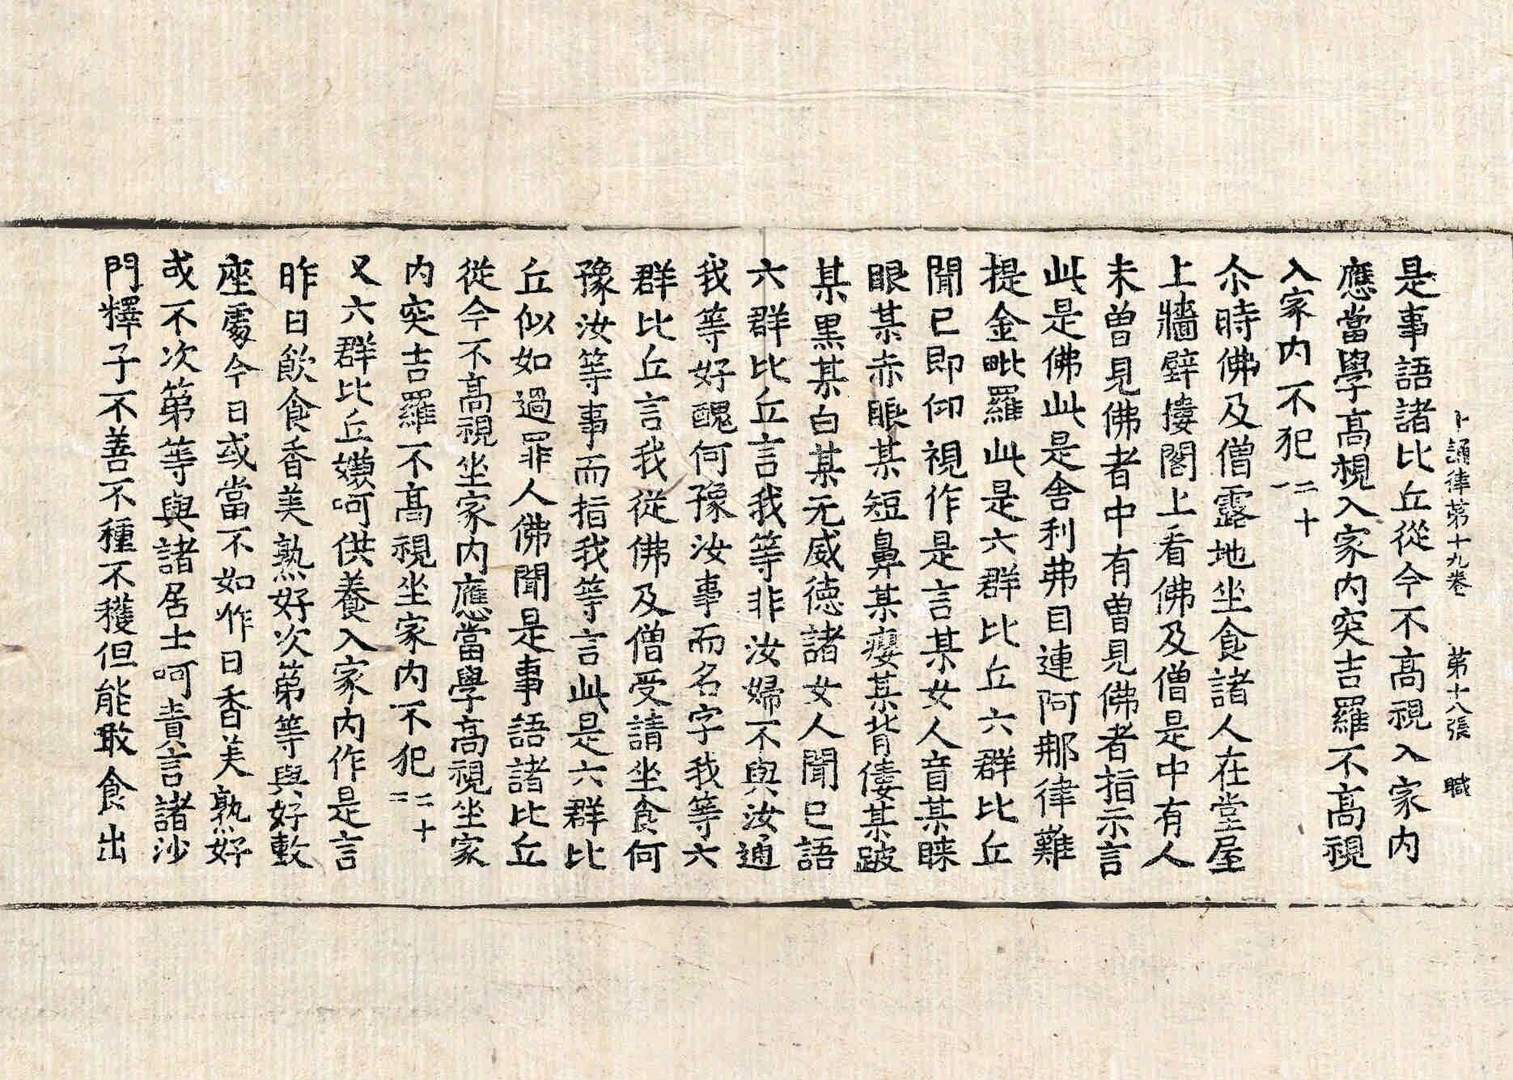 十誦律第十九卷　第十八張　職
是事語諸比丘從今不高視入家内
應當學高視入家内突吉羅不高視
入家内不犯二十一
尒時佛及僧露地坐食諸人在堂屋
上牆壁樓閣上看佛及僧是中有人
未曽見佛者中有曽見佛者指示言
此是佛此是舍利弗目連阿㝹律難
提金毗羅此是六群比丘六群比丘
聞已即仰視作是言某女人盲某睞
眼某赤眼某短鼻某癭某背僂某跛
某黒某白某无威德諸女人聞已語
六群比丘言我等非汝婦不與汝通
我等好醜何豫汝事而名字我等六
群比丘言我從佛及僧受請坐食何
豫汝等事而指我等言此是六群比
丘似如過罪人佛聞是事語諸比丘
從今不高視坐家内應當學高視坐家
内突吉羅不高視坐家内不犯二十二
又六群比丘嫌呵供養入家内作是言
昨日飲食香美熟好次第等與好敷
座處今日或當不如昨日香美熟好
或不次第等與諸居士呵責言諸沙
門釋子不善不種不穫但能噉食出